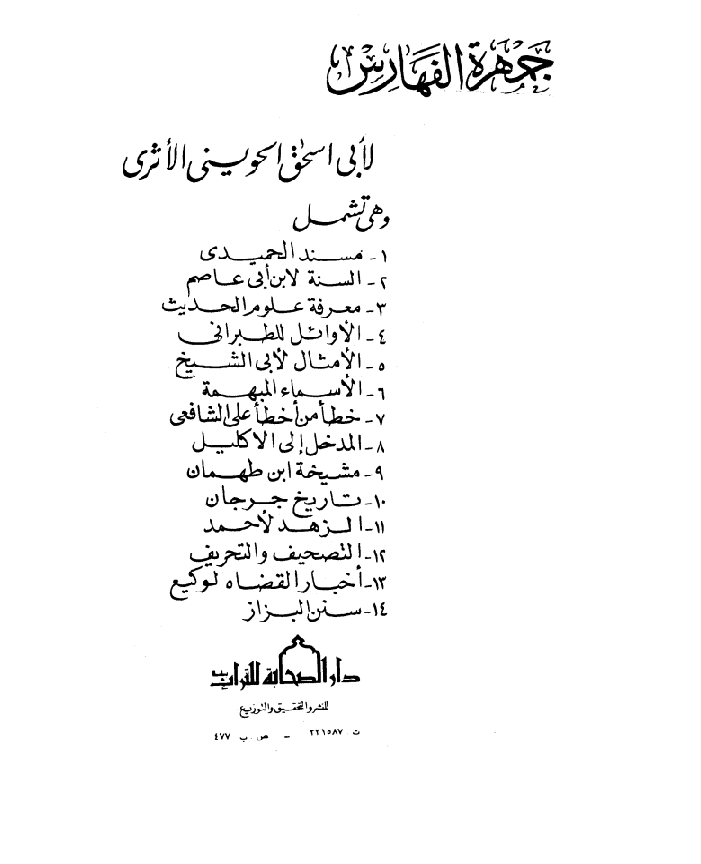 جمهرة الفهارس
لأبى اسحٰق الحوينى الأثرى
وهى تشمل
١- مسند الحميدى
٢- السنة لابن أبى عاصم
٣- معرفة علوم الحديث
٤- الأوائل للطبرانى
٥- الأمثال لأبى الشيخ
٦- الأسماء المبهمة
٧- خطأ من أخطأ على الشافعى
٨- المدخل إلى الاكليل
٩- مشيخة ابن طهمان
١٠- تاريخ جرجان
١١- الزهد لأحمد
١٢- التصحيف والتحريف
١٣- أخبار القضاه لوكيع
١٤- سنن البزاز
دار الصحابة للتراث
للنشر والتحقيق والتوزيع
ت ٢٢١٥٨٧ - ص ب ٤٧٧